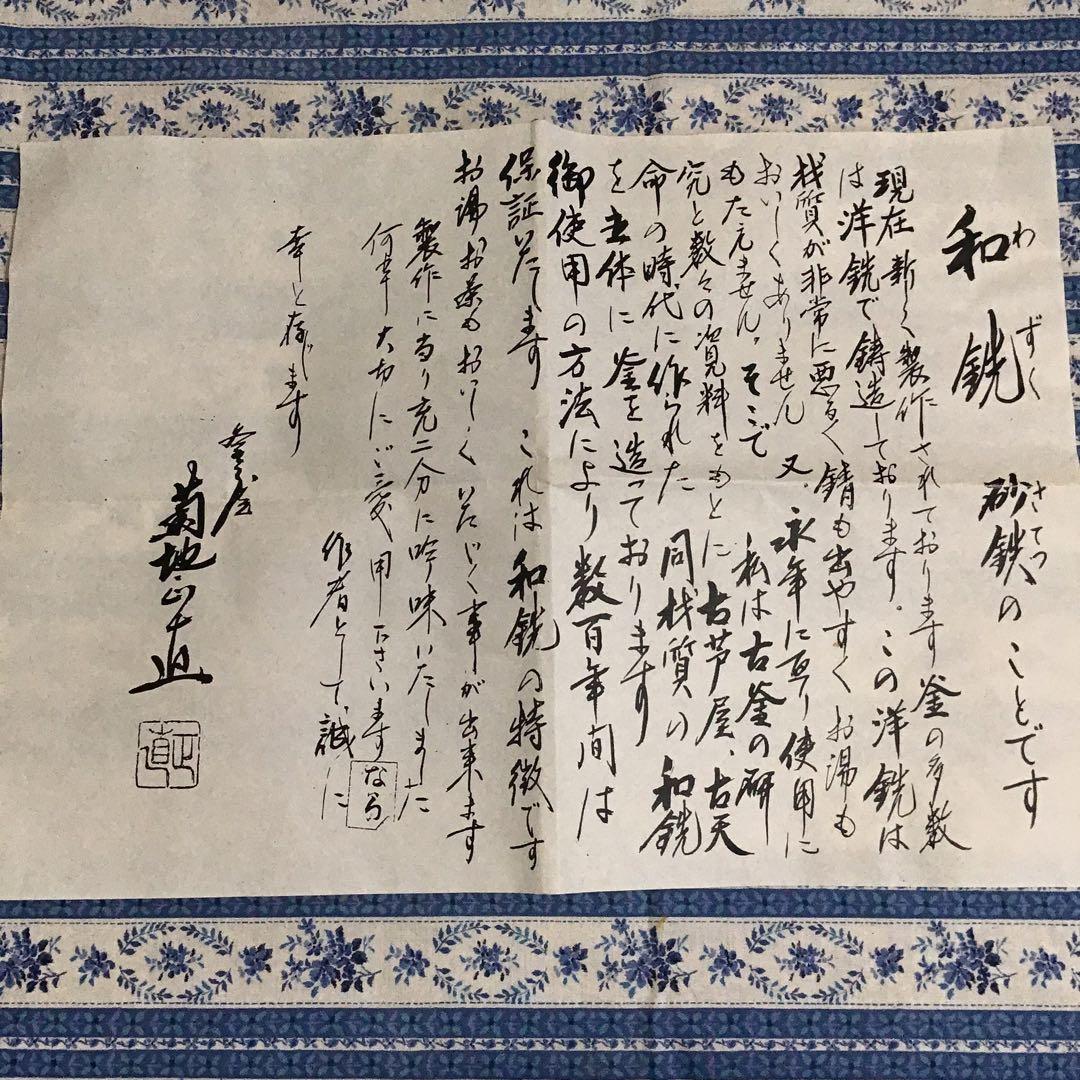 和銑 砂鉄のことです
わずく さてつ
現在新しく製作されております釜の多数
は洋銑で鋳造しております。この洋銑は
材質が非常に悪るく錆も出やすくお湯も
おいしくありません 又、永年に亘り使用に
もたえません。そこで 私は古釜の研
究と数々の資料をもとに古芦屋、古天
命の時代に作られた同材質の和銑
を主体に釜を造っております
御使用の方法により数百年間は
保証いたします これは和銑の特徴です
お湯お茶もおいしくいただく事が出来ます
製作に当り充二分に吟味いたしました
何卒大切にご愛用下さいますなら
作者として誠に
幸と存じます
釜屋
菊地正直
正直